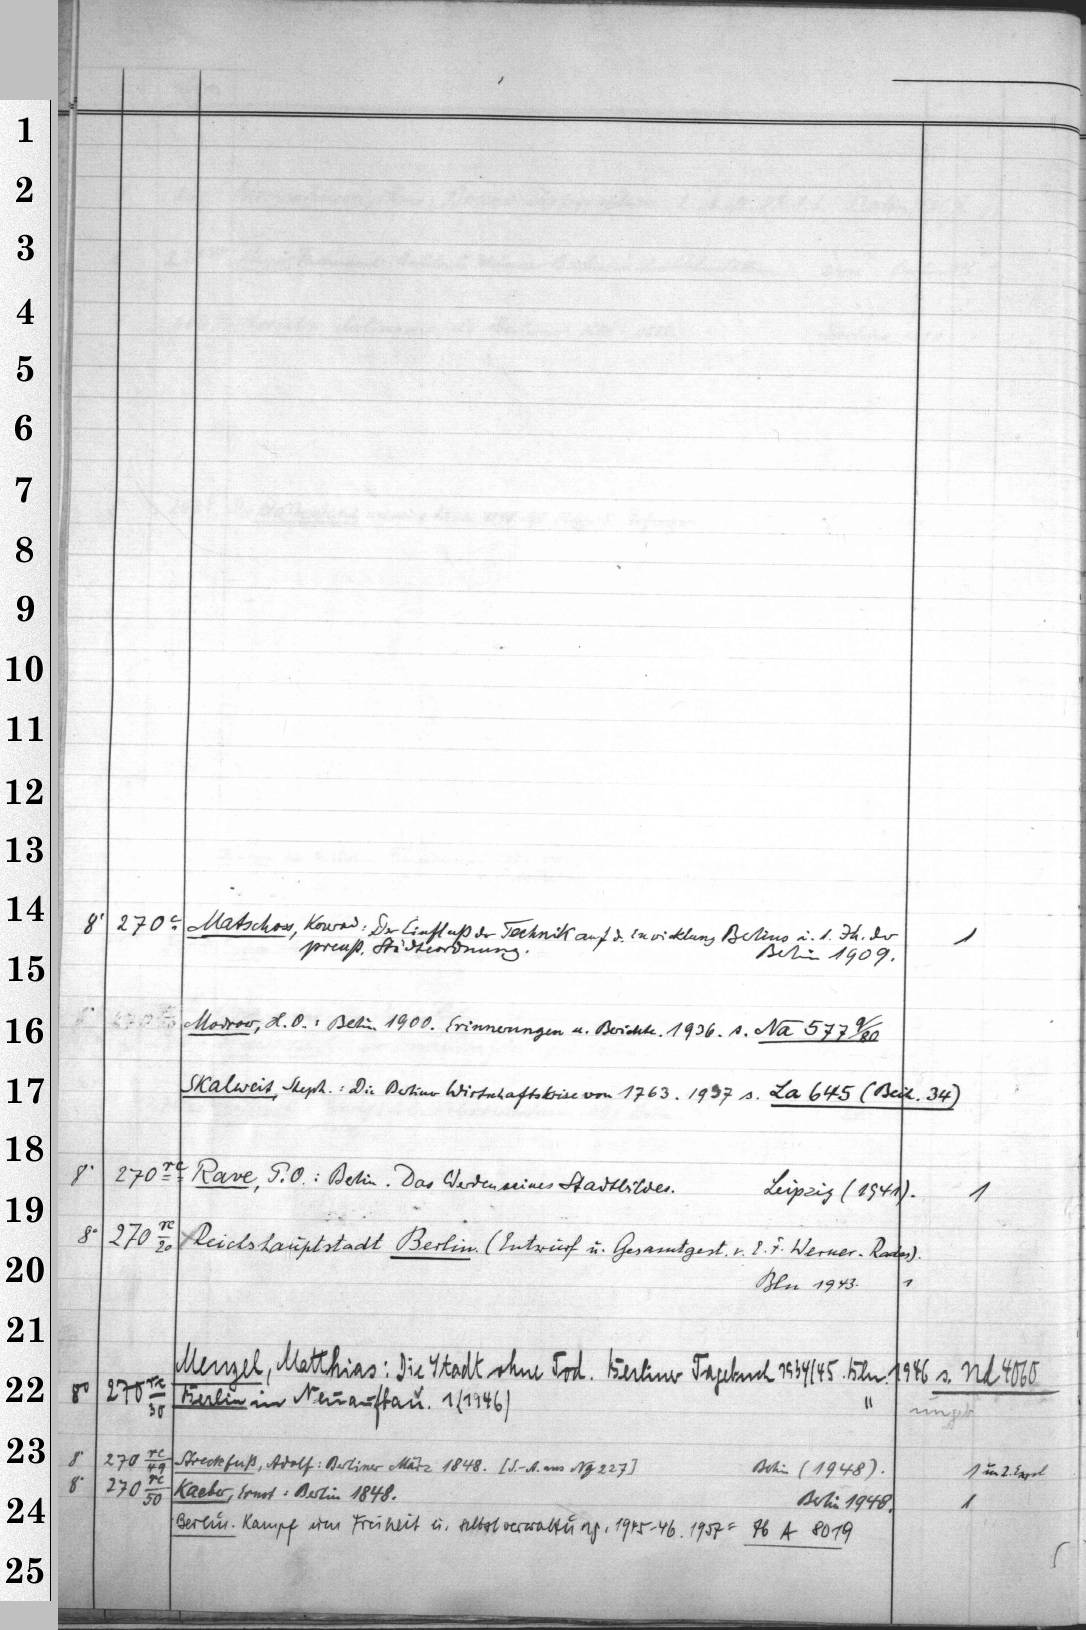 1
2
3
4
5
6
7
8
9
10
11
12
13
14
8° 270 c Matschoss, Konrad: Der Einfluß der Technik auf d. Entwicklung Berlins i. 1. Jh. der 1
preuß. Städteordnung. Berlin 1909.
15
16
Modrow, H. O.: Berlin 1900. Erinnerungen u. Berichte. 1936. s. Na 577 9/80
17
Skalweit, Steph.: Die Berliner Wirtschaftskrise von 1763. 1937 s. La 645 (Beih. 34)
18
8° 270 rc Rave, P. O.: Berlin. Das Werden seines Stadtbildes. Leipzig (1941). 1
19
8° 270 rc/20 Reichshauptstadt Berlin. (Entwurf u. Gesamtgest. v. E. F. Werner-Rades).
20
Bln 1943. 1
21
Menzel, Matthias: Die Stadt ohne Tod. Berliner Tagebuch 1934/45. Bln. 1946 s. Nd 4060
22
8° 270 rc/30 Berlin im Neuaufbau. 1 (1946) "
23
8° 270 rc/49 Streckfuß, Adolf: Berliner März 1848. [S.-A. aus Ng 227] Berlin (1948). 1 u. 2. Expl
8° 270 rc/50 Kaeber, Ernst: Berlin 1848. Berlin 1948. 1
24
Berlin. Kampf um Freiheit u. Selbstverwaltung. 1945-46. 1957 = 76 A 8019
25